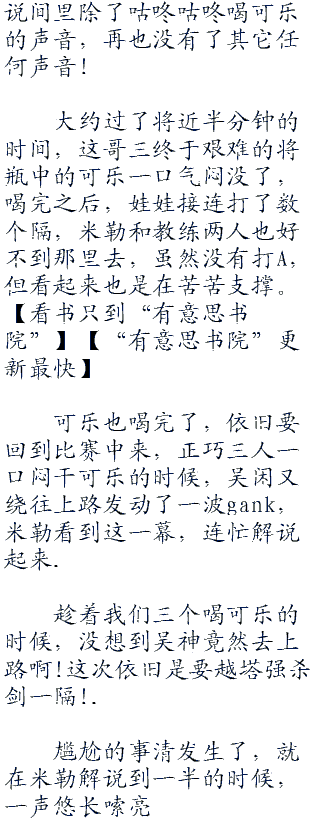 说间里除了咕咚咕咚喝可乐
的声音，再也没有了其它任
何声音！
大约过了将近半分钟的
时间，这哥三终于艰难的将
瓶中的可乐一口气闷没了，
喝完之后，娃娃接连打了数
个隔，米勒和教练两人也好
不到那里去，虽然没有打A，
但看起来也是在苦苦支撑。
【看书只到“有意思书
院”】【“有意思书院”更
新最快】
可乐也喝完了，依旧要
回到比赛中来，正巧三人一
口闷干可乐的时候，吴闲又
绕往上路发动了一波gank，
米勒看到这一幕，连忙解说
起来.
趁着我们三个喝可乐的
时候，没想到吴神竟然去上
路啊!这次依旧是要越塔强杀
剑一隔!.
尴尬的事清发生了，就
在米勒解说到一半的时候，
一声悠长嗦亮